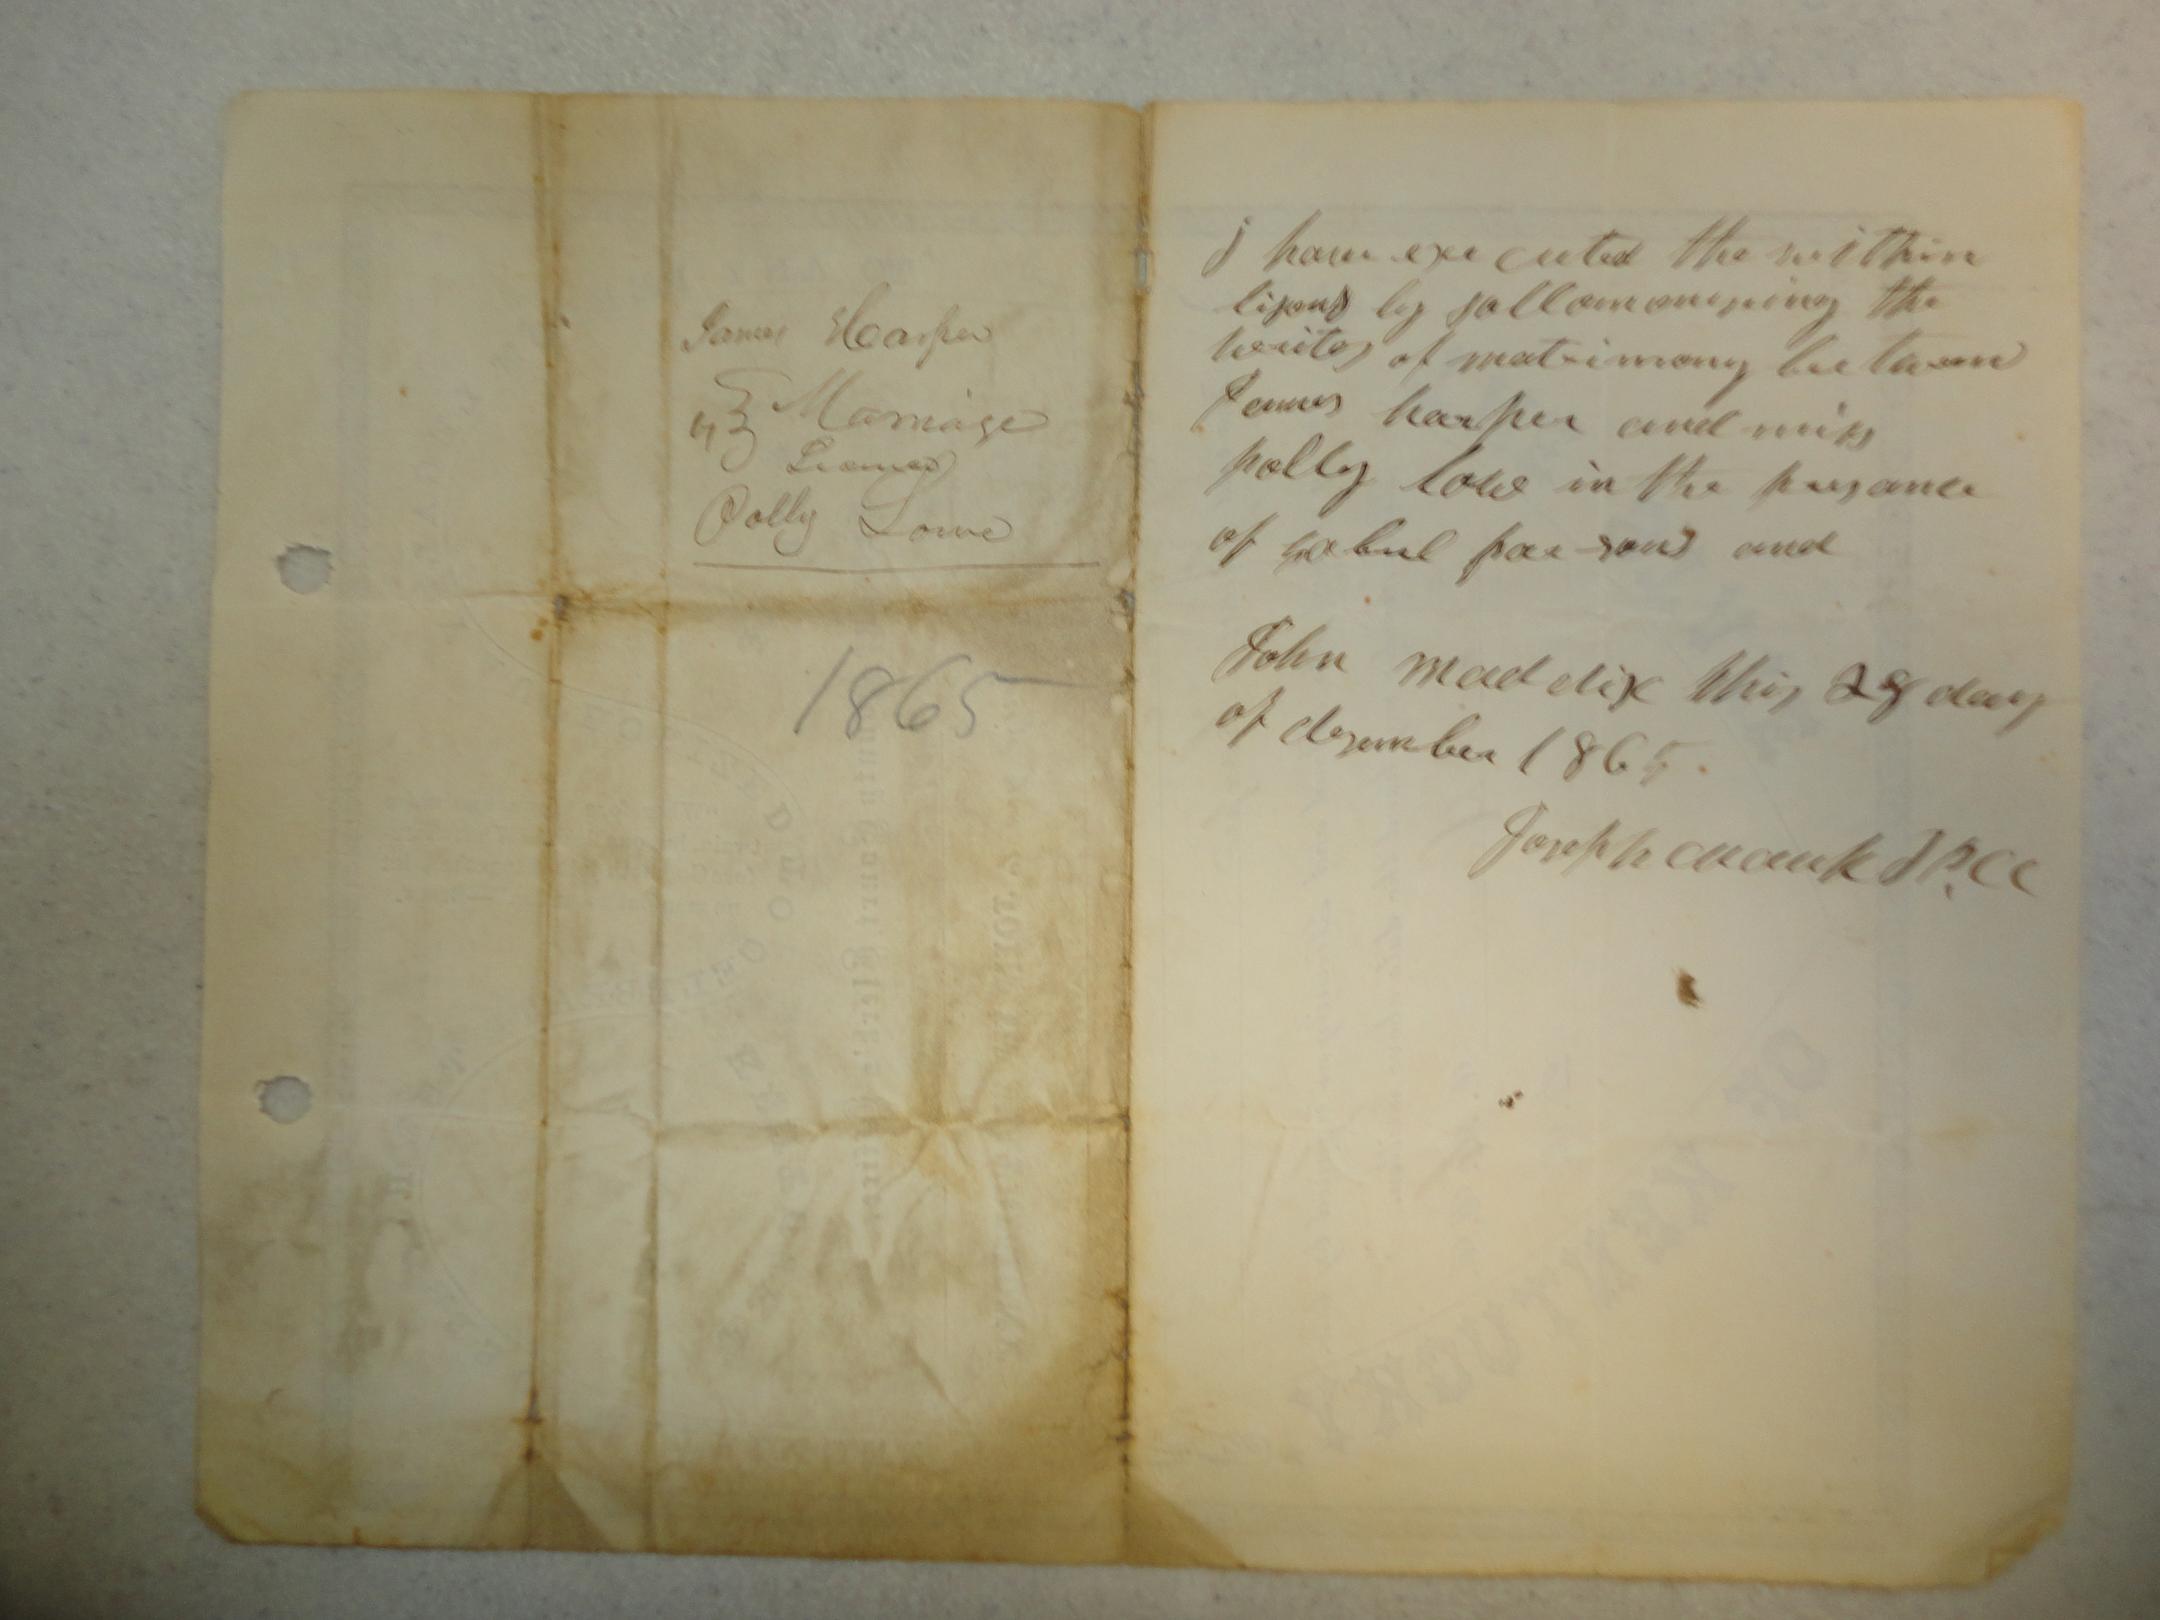 James Harper
To } Marriage
License
Polly Lowe
1865
I have exe cuted the within
lisons by sollomonising the
writes of matrimony between
James harper and miss
polly lowe in the presance
of gabul par sons and
John mad dix this 28 day
of desember 1865.
Joseph crank J P. CC
KENTUCKY